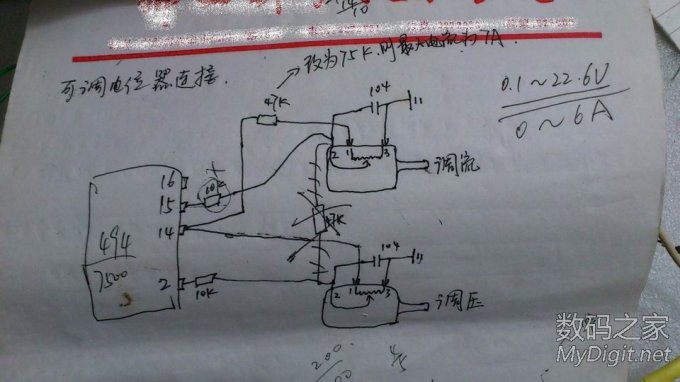 改为75K.则最大电流为7A.
可调电位器连接.
47K
104
11
0.1~22.6V
0~6A
2 1 3
调流
16
10K
15
14
494
7500
47K
104
11
2
10K
2 1 3
调压
200.
4/5
数码之家
MyDigit.net